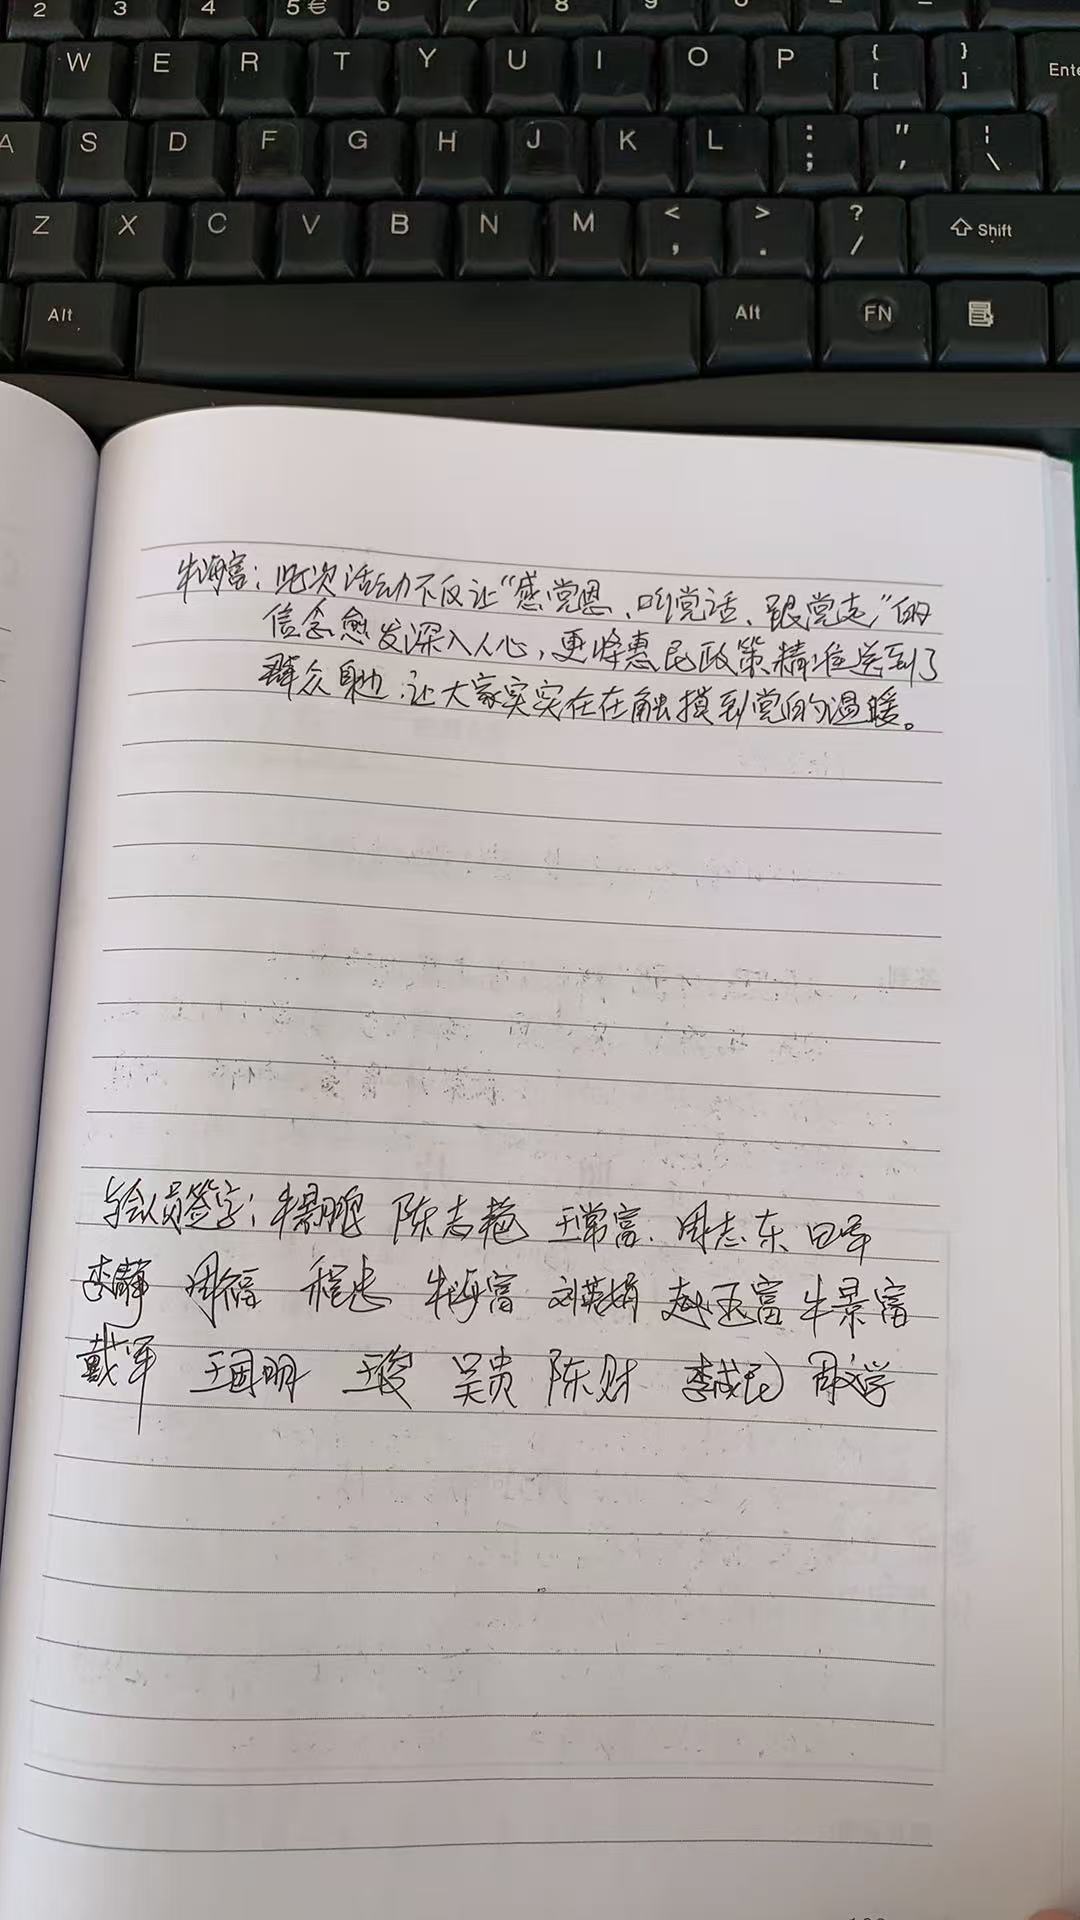 2 3 4 5 € 6 7 8 9
W E R T Y U I O P { [ } ] Ente
A S D F G H J K L : ; " ' ¦ \
Z X C V B N M < , > . ? / Shift
Alt Alt FN
牛海富：此次活动不仅让“感党恩、听党话、跟党走”的
信念愈发深入人心，更将惠民政策精准送到了
群众身边，让大家实实在在触摸到党的温暖。
与会人员签字：陈志艳 王常富 周志东 白军
李静 周福 程忠 牛海富 刘英娟 赵玉富 牛景富
戴军 王国明 王俊 吴贵 陈财 李成民 周文学